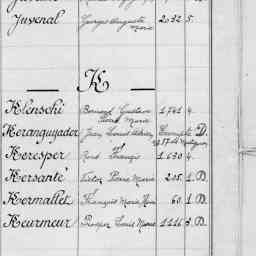 Juvenal Georges Auguste Marie 2.032 5.
K
Klenschi Bernard Gustave Marie 1.741 4.
Keranguyader Jean Louis Exempté D.
Keresper René François 1.630 4.
Kersanté Victor Pierre Marie 205 1.D.
Kermallet François Marie 60 1.D.
Keurmeur Prosper Louis Marie 1116 3.D.